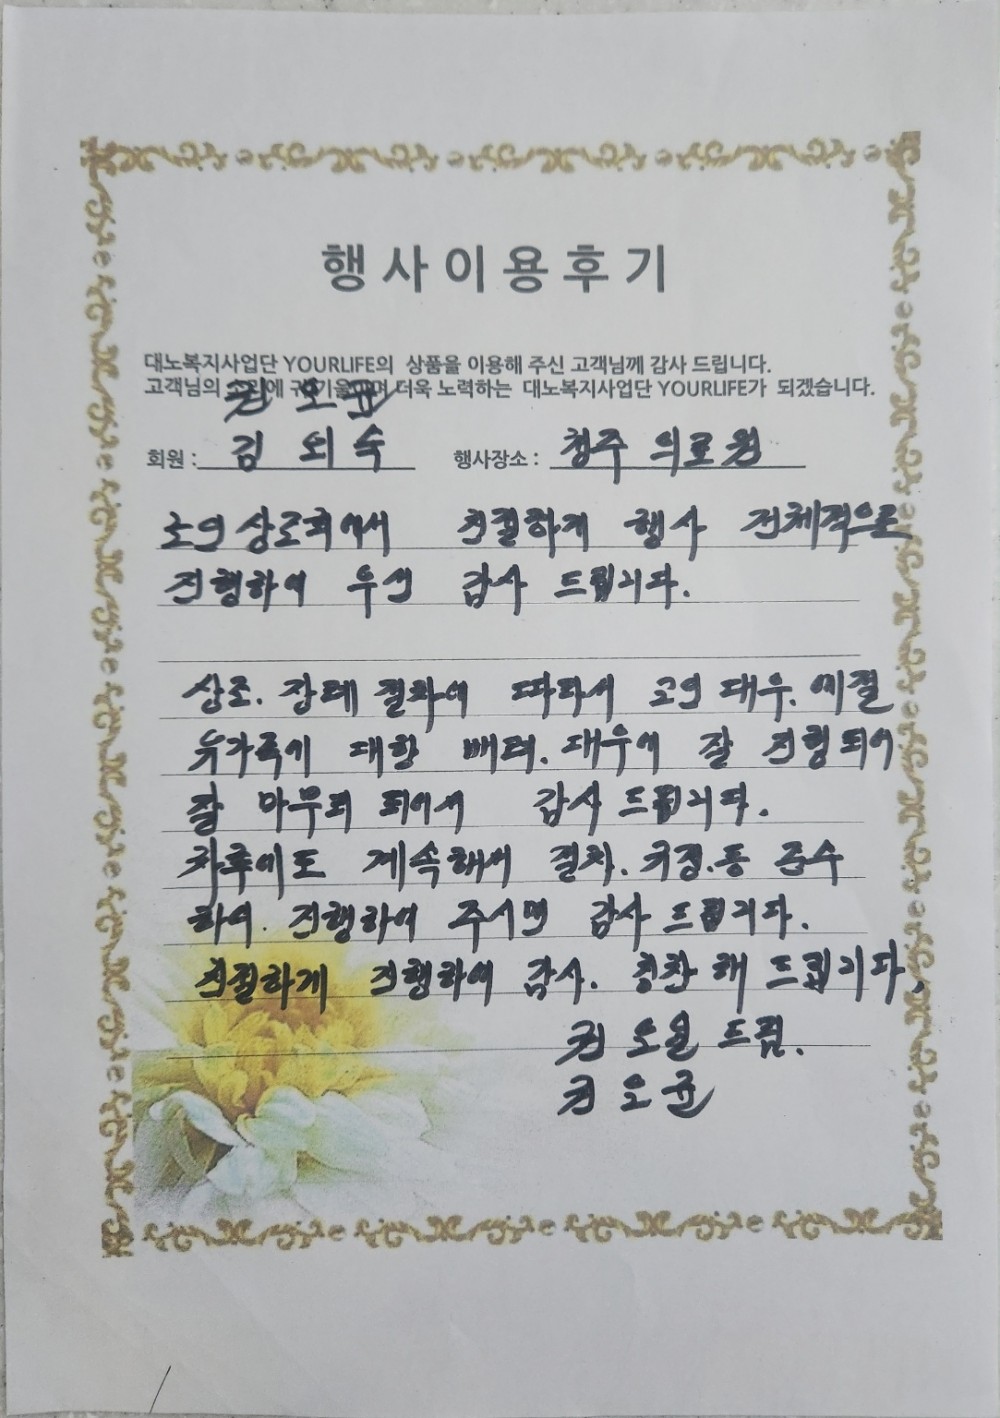 행사이용후기
대노복지사업단 YOURLIFE의 상품을 이용해 주신 고객님께 감사 드립니다.
고객님의 소리에 귀 기울이며 더욱 노력하는 대노복지사업단 YOURLIFE가 되겠습니다.
권오균
회원 : 김외숙 행사장소 : 청주 의료원
친절하게 행사 전체적으로
진행하여 우선 감사 드립니다.
상조. 장례 절차에 따라서 고인 대우. 예절
유가족에 대한 배려. 대우에 잘 진행되어
잘 마무리 되어서 감사 드립니다.
차후에도 계속해서 절차. 규정.등 준수
하여. 진행하여 주시면 감사 드립니다.
친절하게 진행하여 감사. 칭찬 해 드립니다.
권오일 드림.
권오균